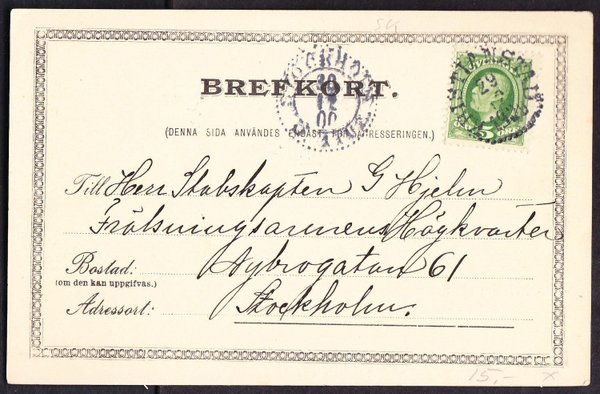 BREFKORT.
(DENNA SIDA ANVÄNDES ENDAST FÖR ADRESSERINGEN.)
STOCKHOLM
30
12
00
KRISTIANSTAD
29
5
Till Herr Stabskapten G Hjelm
Frälsningsarmens Högkvarter
Bostad: Nybrogatan 61
(om den kan uppgifvas.)
Adressort: Stockholm.
15,- x